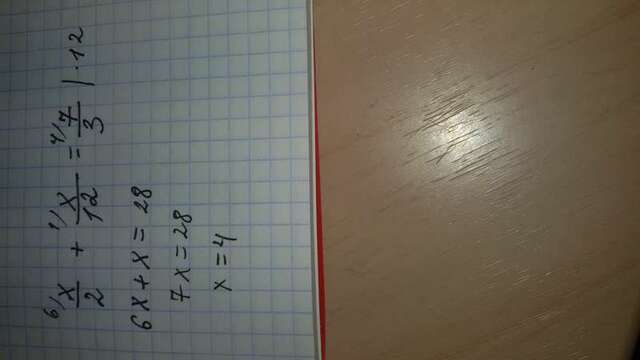 ⁶⁾x/2 + ¹⁾x/12 = ⁴⁾7/3 | · 12
6x + x = 28
7x = 28
x = 4